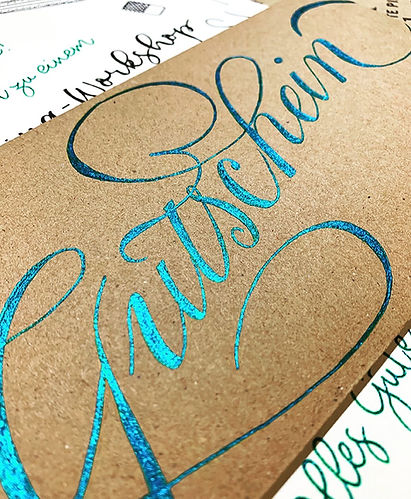 zu einem
ng-Workshop
Gutschein
lles Gute